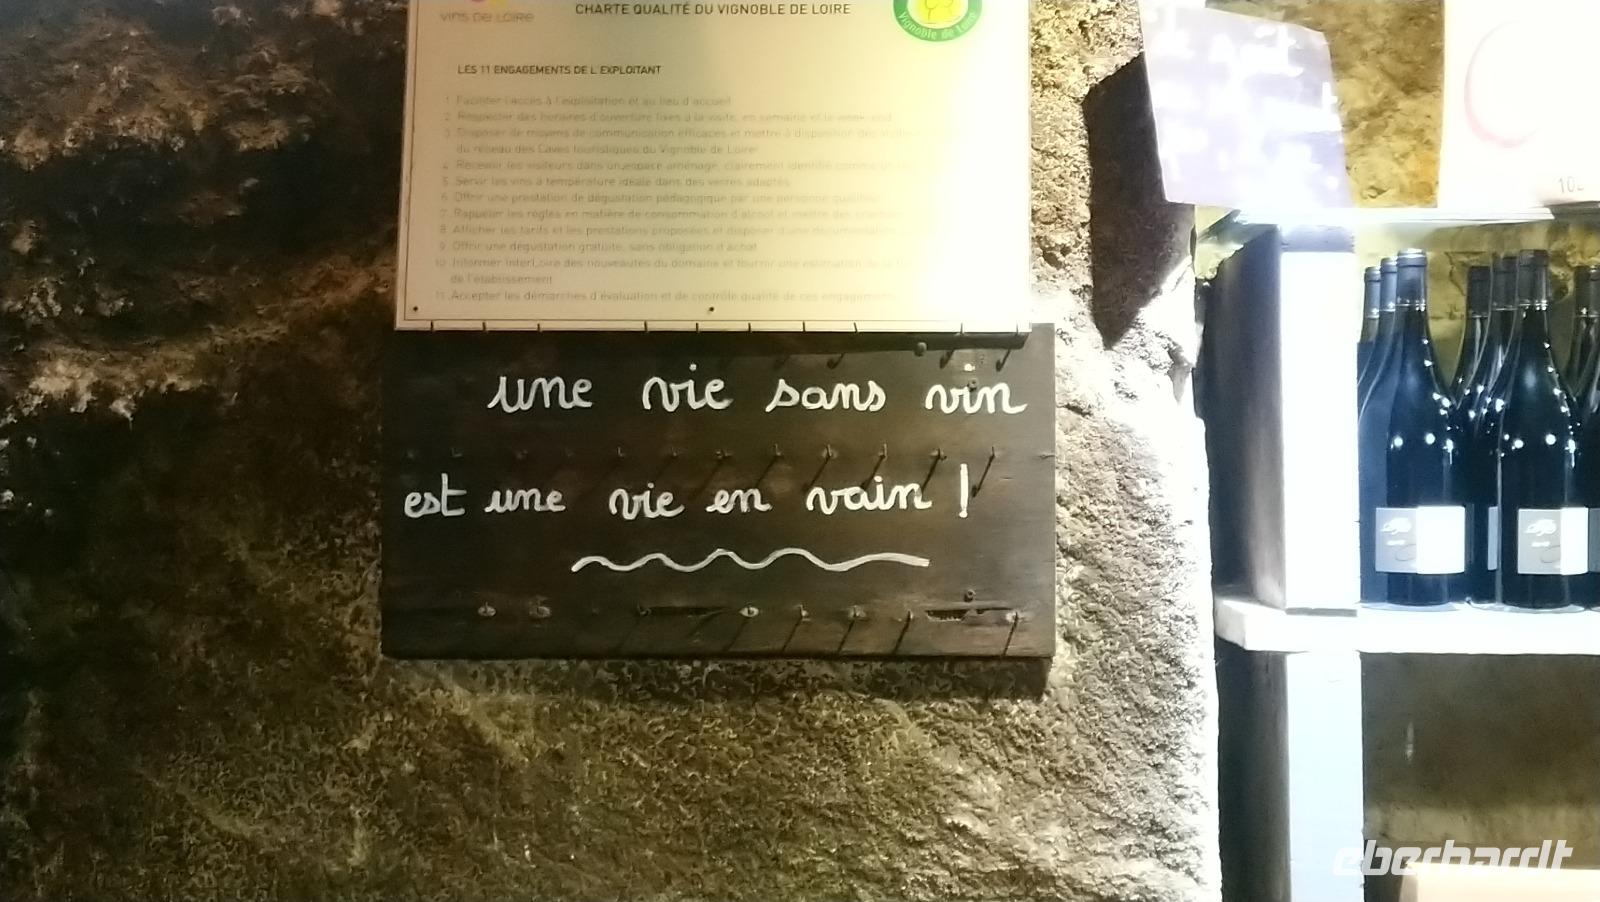 VINS DE LOIRE
CHARTE QUALITÉ DU VIGNOBLE DE LOIRE
Vignoble de Loire
LES 11 ENGAGEMENTS DE L'EXPLOITANT
1. Faciliter l'accès à l'exploitation et au lieu d'accueil
2. Respecter des horaires d'ouverture fixes à la visite, en semaine et le week-end
3. Disposer de moyens de communication efficaces et mettre à disposition des
du réseau des Caves touristiques du Vignoble de Loire
4. Recevoir les visiteurs dans un espace aménagé, clairement identifié comme
5. Servir les vins à température idéale dans des verres adaptés
6. Offrir une prestation de dégustation pédagogique par une personne
7. Rappeler les règles en matière de consommation d'alcool et mettre des
8. Afficher les tarifs et les prestations proposées et disposer d'une
9. Offrir une dégustation gratuite, sans obligation d'achat
10. Informer InterLoire des nouveautés du domaine et fournir une estimation de la
de l'établissement
11. Accepter les démarches d'évaluation et de contrôle qualité de ces
une vie sans vin
est une vie en vain !
eberhardt